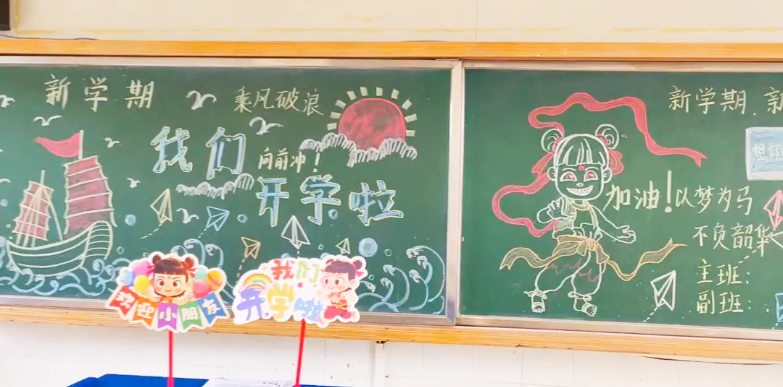 新学期
乘风破浪
我们
向前冲！
开学啦
欢迎小朋友
我们
开学啦
新学期，新
加油！
以梦为马
不负韶华
主班：
副班：